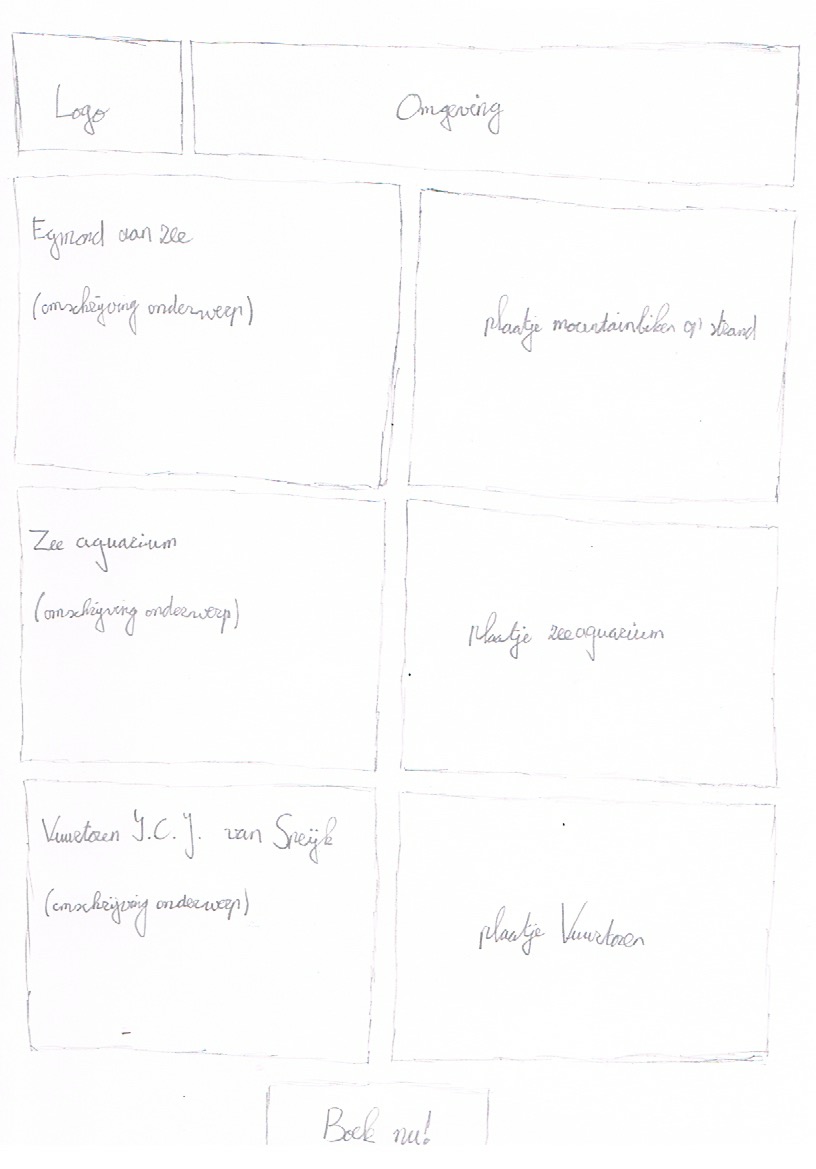 Logo
Omgeving
Egmond aan zee
(omschrijving onderwerp)
plaatje mountainbiken op strand
Zee aquarium
(omschrijving onderwerp)
plaatje zeeaquarium
Vuurtoren J.C.J. van Speijk
(omschrijving onderwerp)
plaatje Vuurtoren
Boek nu!